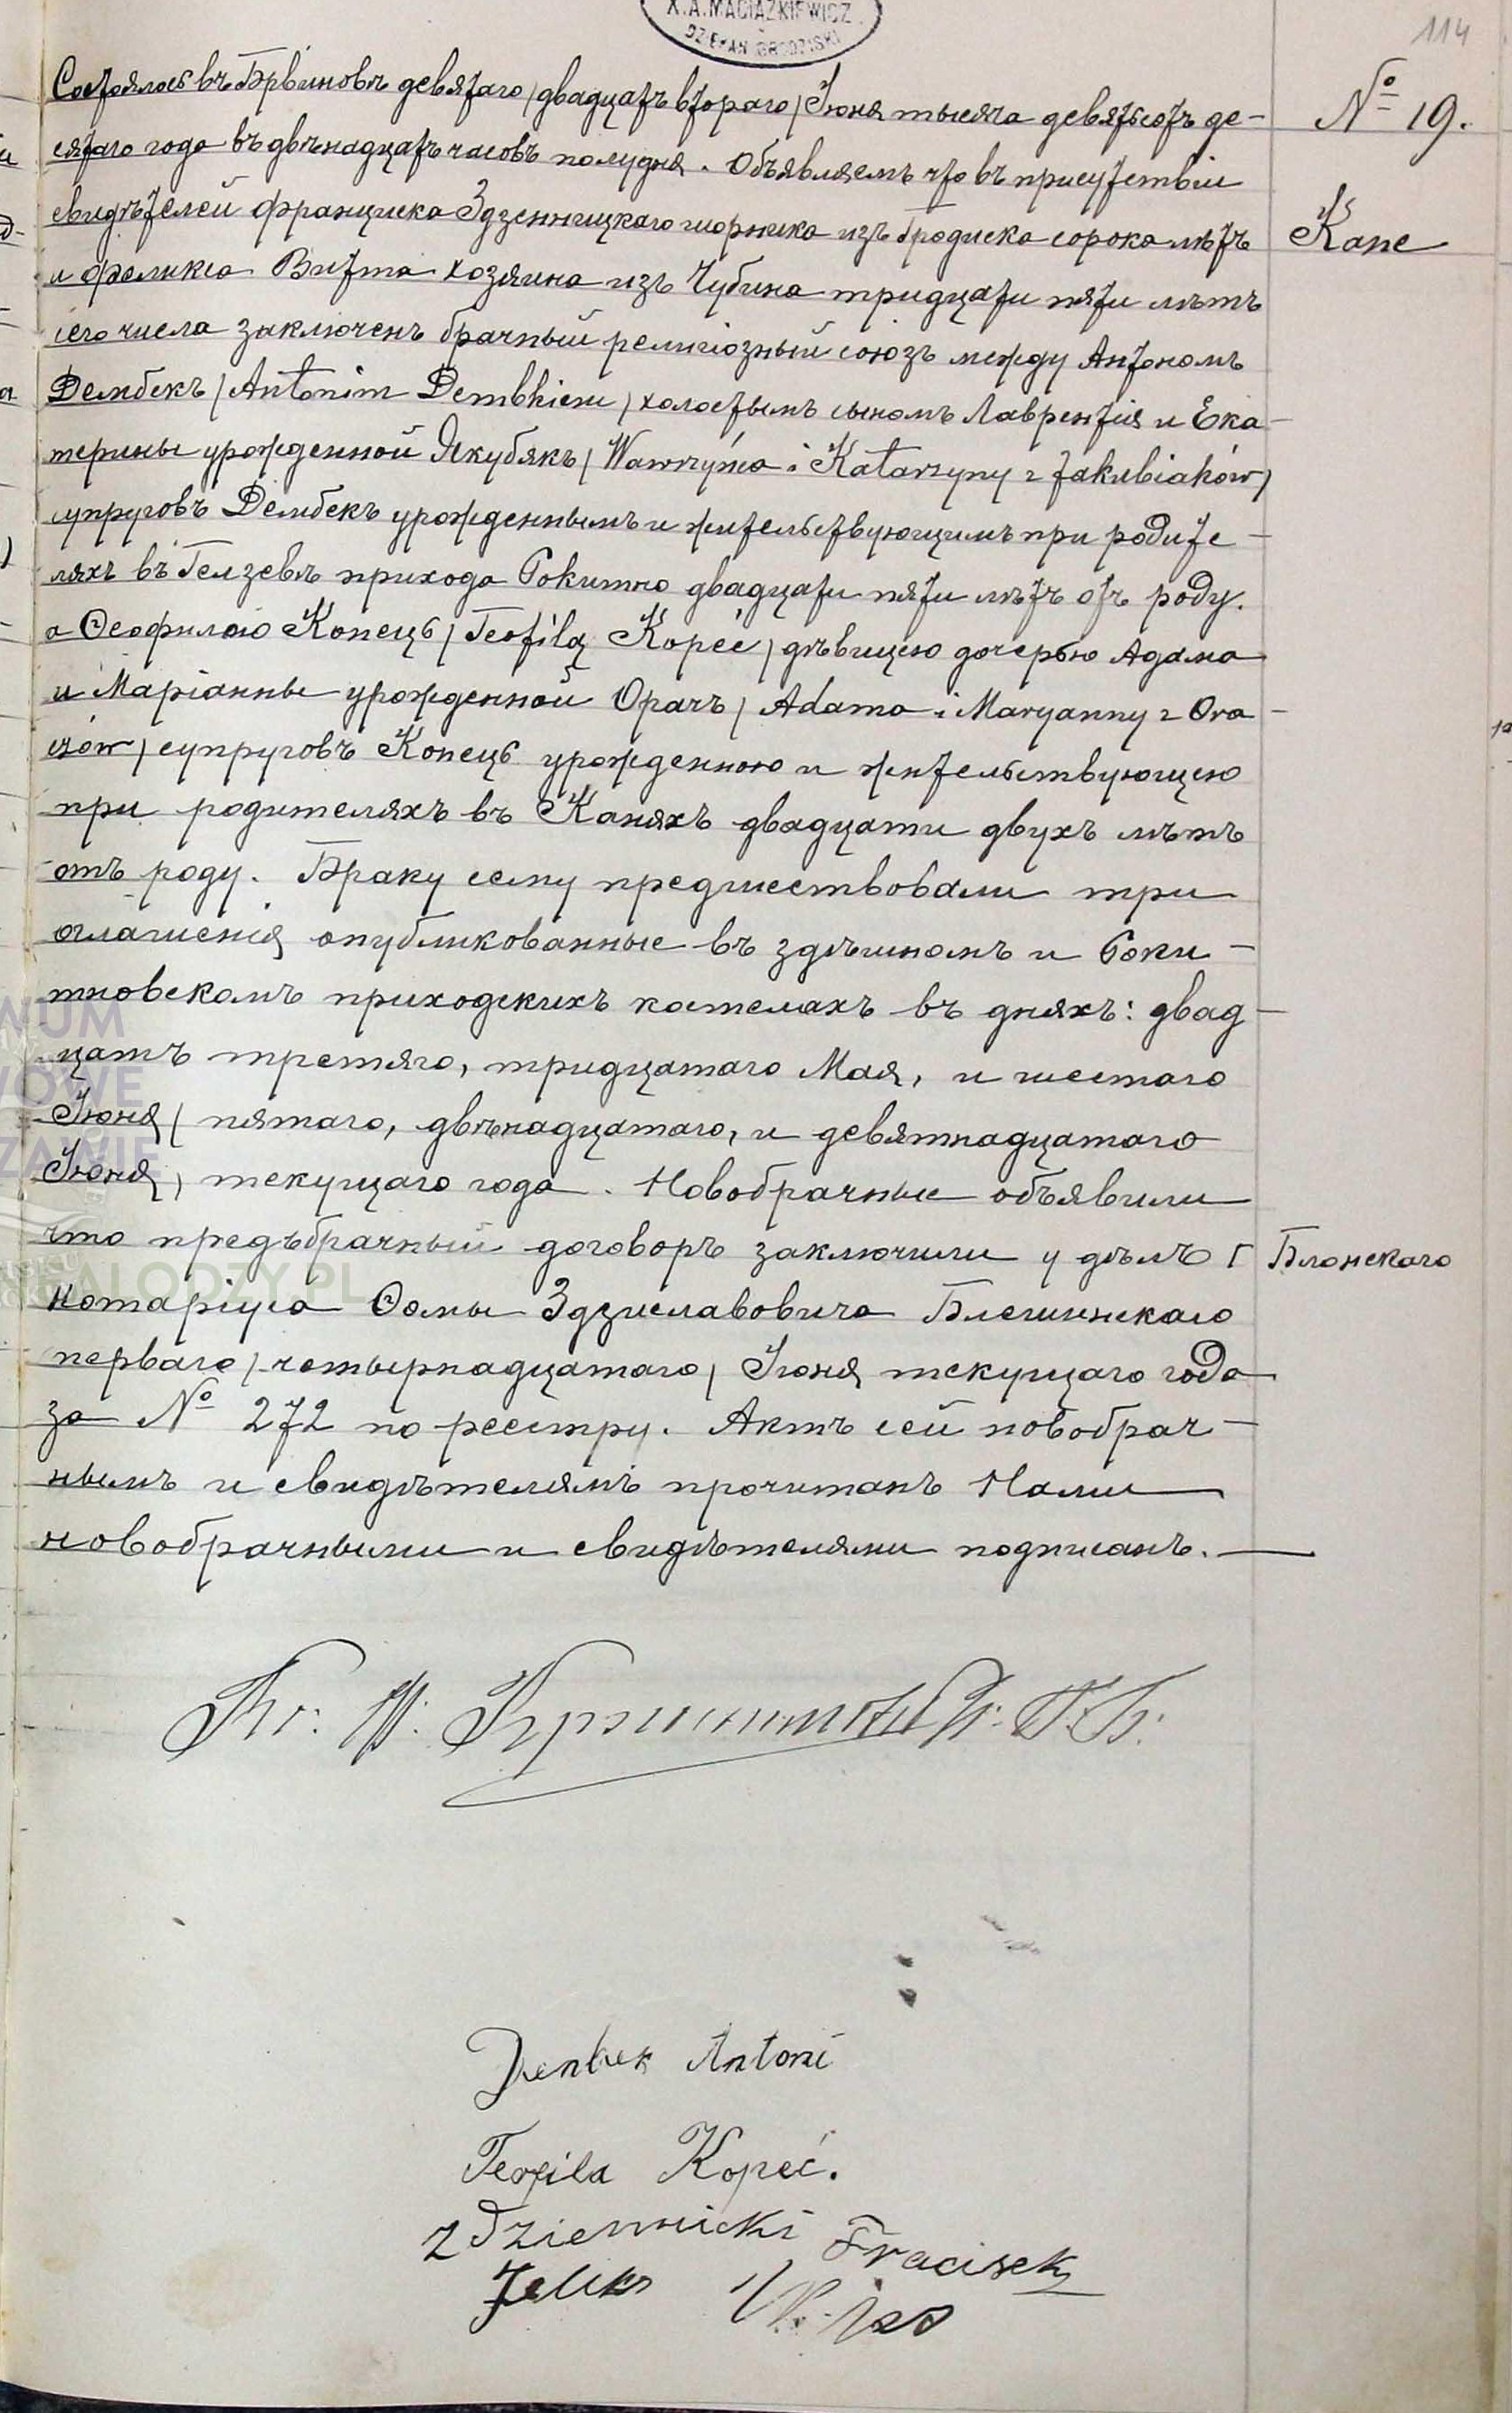 X.A.MACIĄŻKIEWICZ
DZIEKAN GRODZISKI
114
№ 19.
Kanie
Состоялось въ Брвиновѣ девятаго / двадцать втораго / Іюня тысяча девятьсотъ де-
сятаго года въ двѣнадцать часовъ полудня. Объявляемъ что въ присутствіи
свидѣтелей Франциска Здзенницкаго шорника изъ Гродиска сорока лѣтъ
и Феликса Вийта хозяина изъ Чубина тридцати пяти лѣтъ
сего числа заключенъ брачный религіозный союзъ между Антономъ
Дембекъ / Antonim Dembkiem / холостымъ сыномъ Лаврентія и Ека-
терины урожденной Якубякъ / Wawrzyńca i Katarzyny z Jakubiaków /
супруговъ Дембекъ урожденнымъ и жительствующимъ при родите-
ляхъ въ Гелзевѣ прихода Рокитно двадцати пяти лѣтъ отъ роду.
а Ѳеофилою Копець / Teofilą Kopeć / дѣвицею дочерью Адама
и Маріанны урожденной Орачъ / Adama i Maryanny z Ora-
czów / супруговъ Копець урожденною и жительствующею
при родителяхъ въ Каняхъ двадцати двухъ лѣтъ
отъ роду. Браку сему предшествовали три
оглашенія опубликованные въ здѣшномъ и Роки-
тновскомъ приходскихъ костелахъ въ дняхъ: двад-
цать третяго, тридцатаго Мая, и шестаго
Іюня / пятаго, двѣнадцатаго, и девятнадцатаго
Іюня / текущаго года. Новобрачные объявили
что предъбрачный договоръ заключили у дѣлъ Г Блонскаго
нотаріуса Ѳомы Здзиславовича Блешинскаго
перваго / четырнадцатаго / Іюня текущаго года
за № 272 по реестру. Актъ сей новобрач-
нымъ и свидѣтелямъ прочитанъ Нами
новобрачными и свидѣтелями подписанъ.
Dembek Antoni
Teofila Kopeć.
Zdziennicki Fracisek
Feliks